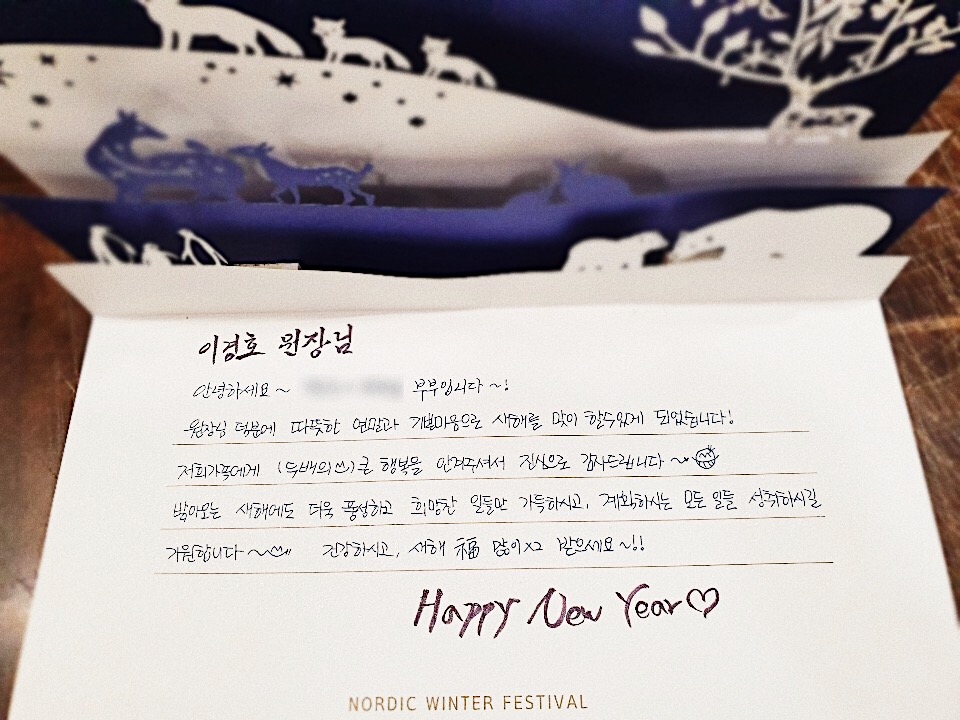 이경호 원장님
안녕하세요~ 부부입니다~!
원장님 덕분에 따뜻한 연말과 기쁜마음으로 새해를 맞이 할수있게 되었습니다!
저희가족에게 (두배의) 큰 행복을 안겨주셔서 진심으로 감사드립니다~
밝아오는 새해에도 더욱 풍성하고 희망찬 일들만 가득하시고, 계획하시는 모든 일들 성취하시길
기원합니다~ 건강하시고, 새해 福 많이x2 받으세요~!!
Happy New Year♡
NORDIC WINTER FESTIVAL